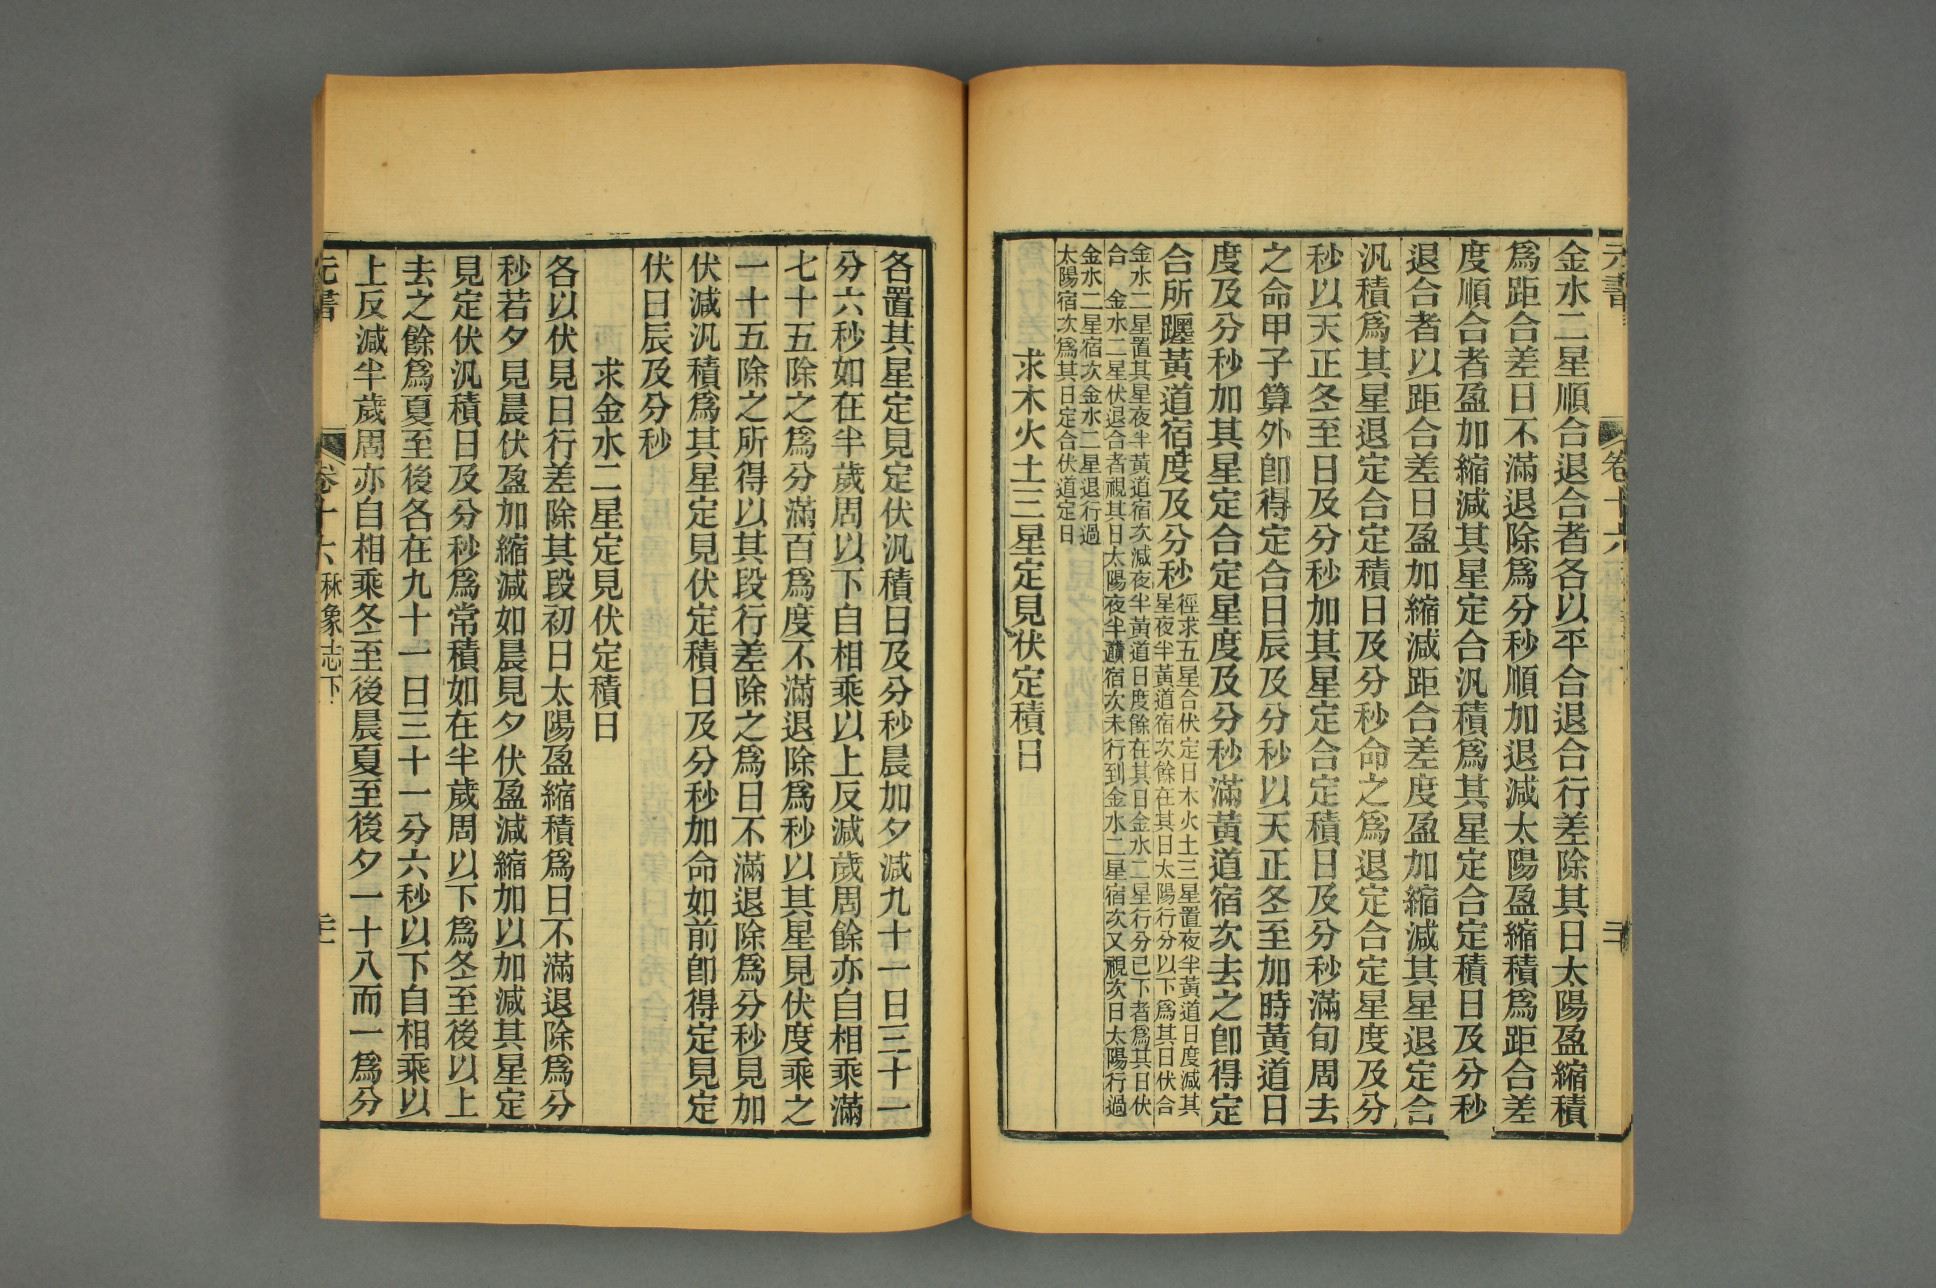 元書
卷十六
金水二星順合退合者各以平合退合行差除其日太陽盈縮積
爲距合差日不滿退除爲分秒順加退減太陽盈縮積爲距合差
度順合者盈加縮減其星定合汎積爲其星定合定積日及分秒
退合者以距合差日盈加縮減距合差度盈加縮減其星退定合
汎積爲其星退定合定積日及分秒命之爲退定合定星度及分
秒以天正冬至日及分秒加其星定合定積日及分秒滿旬周去
之命甲子算外卽得定合日辰及分秒以天正冬至加時黃道日
度及分秒加其星定合定星度及分秒滿黃道宿次去之卽得定
合所躔黃道宿度及分秒
徑求五星合伏定日木火土三星置夜半黃道日度減其
星夜半黃道宿次餘在其日太陽行分以下爲其日伏合
金水二星置其星夜半黃道宿次減夜半黃道日度餘在其日金水二星行分已下者爲其日伏
合 金水二星伏退合者視其日太陽夜半黃道宿次未行到金水二星宿次又視次日太陽行過
金水二星宿次金水二星退行過
太陽宿次爲其日定合伏道定日
求木火土三星定見伏定積日
各置其星定見定伏汎積日及分秒晨加夕減九十一日三十一
分六秒如在半歲周以下自相乘以上反減歲周餘亦自相乘滿
七十五除之爲分滿百爲度不滿退除爲秒以其星見伏度乘之
一十五除之所得以其段行差除之爲日不滿退除爲分秒見加
伏減汎積爲其星定見伏定積日及分秒加命如前卽得定見定
伏日辰及分秒
求金水二星定見伏定積日
各以伏見日行差除其段初日太陽盈縮積爲日不滿退除爲分
秒若夕見晨伏盈加縮減如晨見夕伏盈減縮加以加減其星定
見定伏汎積日及分秒爲常積如在半歲周以下爲冬至後以上
去之餘爲夏至後各在九十一日三十一分六秒以下自相乘以
上反減半歲周亦自相乘冬至後晨夏至後夕一十八而一爲分
元書
卷十六
秝象志下